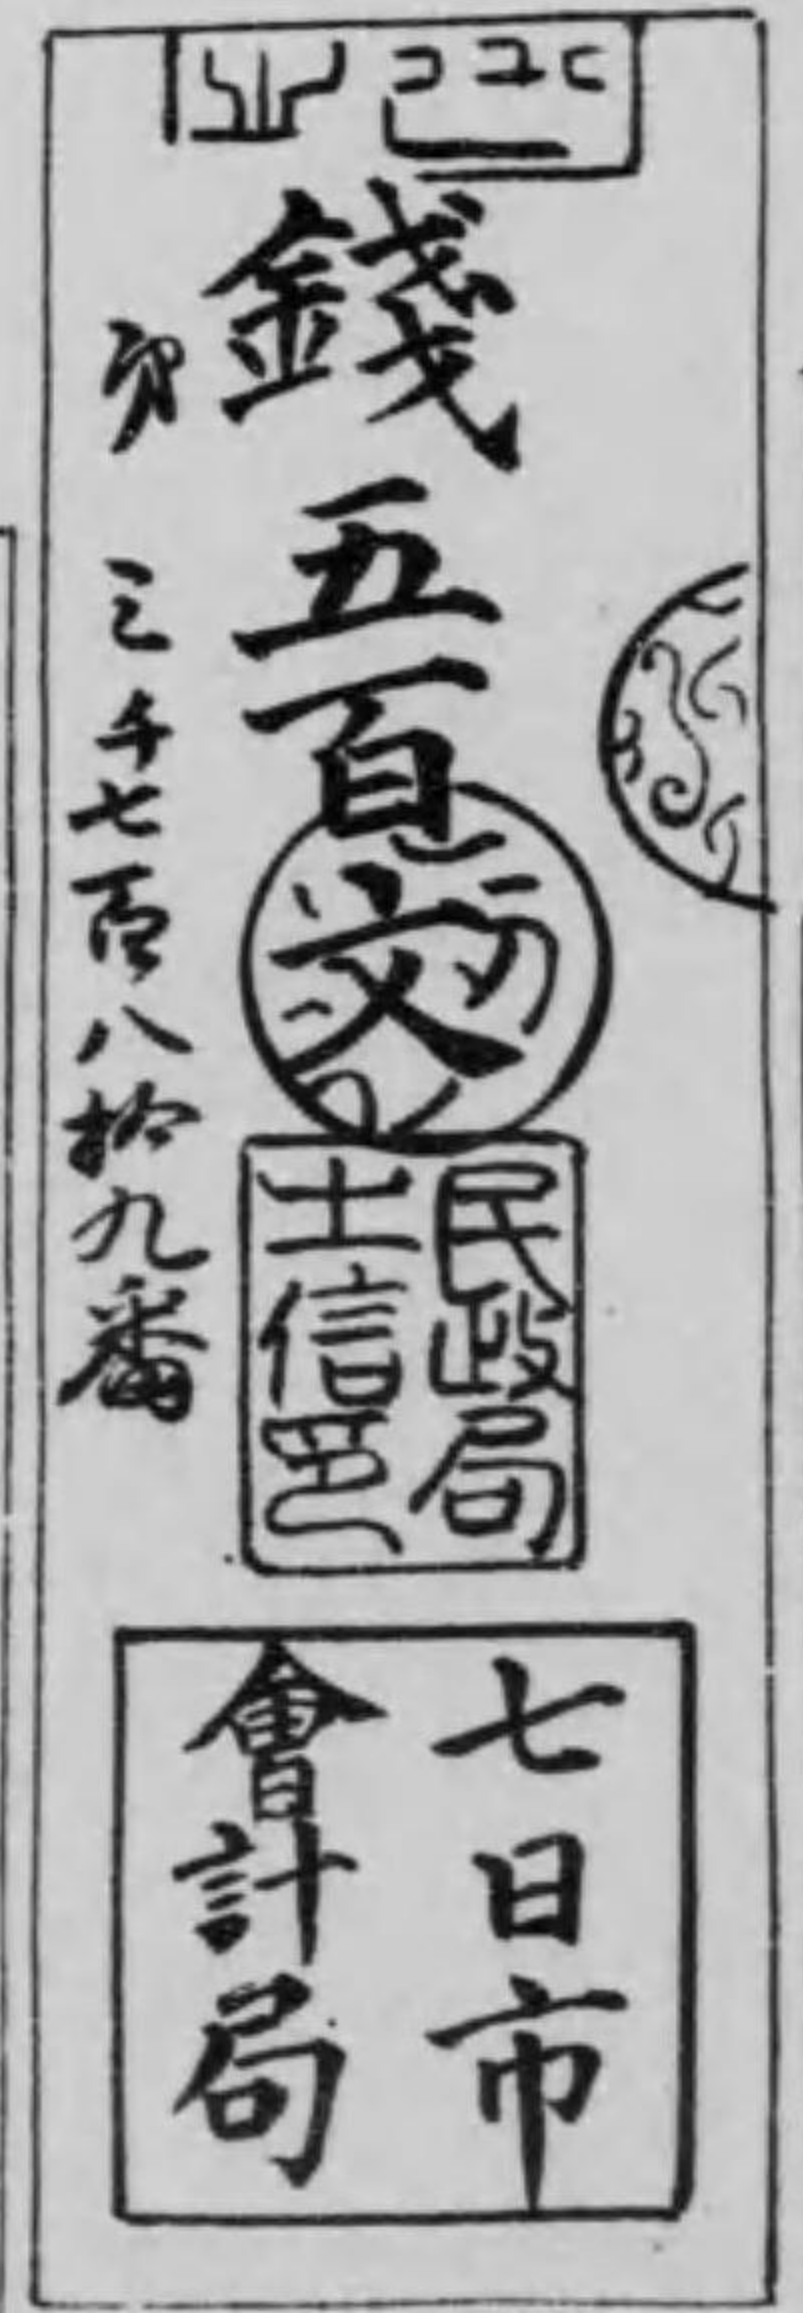 錢五百文
三千七百八拾九番
民政局
士信
七日市
會計局